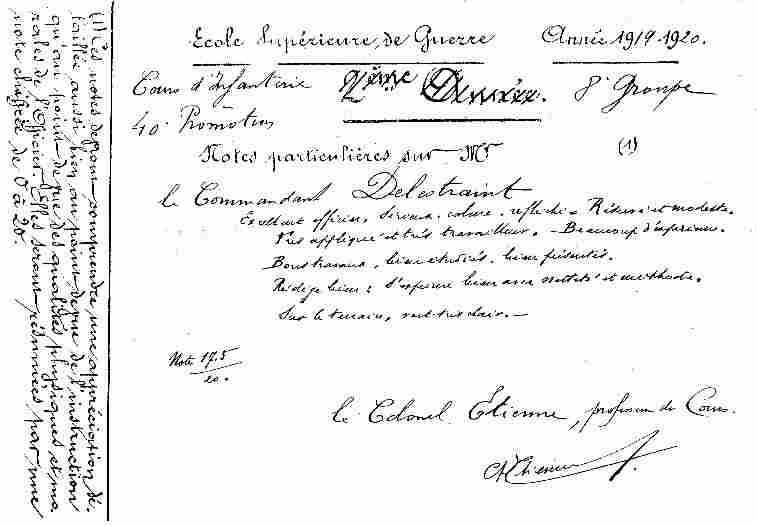 Ecole Supérieure de Guerre Année 1919-1920.
Cours d'Infanterie 2ème Année. 8e Groupe
40e Promotion
Notes particulières sur Mr (1)
le Commandant Delestraint
Excellent officier, sérieux, calme, réfléchi - Réservé et modeste.
Très appliqué et très travailleur. - Beaucoup d'expérience.
Bons travaux, bien étudiés, bien présentés.
Rédige bien ; s'exprime bien avec netteté et méthode.
Sur le terrain, voit très clair. -
Note 17.5
20.
le Colonel Etienne, professeur du Cours.
AEtienne
(1) Ces notes devront comprendre une appréciation dé-
taillée aussi bien au point de vue de l'instruction
qu'au point de vue des qualités physiques et mo
rales de l'Officier. Elles seront résumées par une
note chiffrée de 0 à 20.